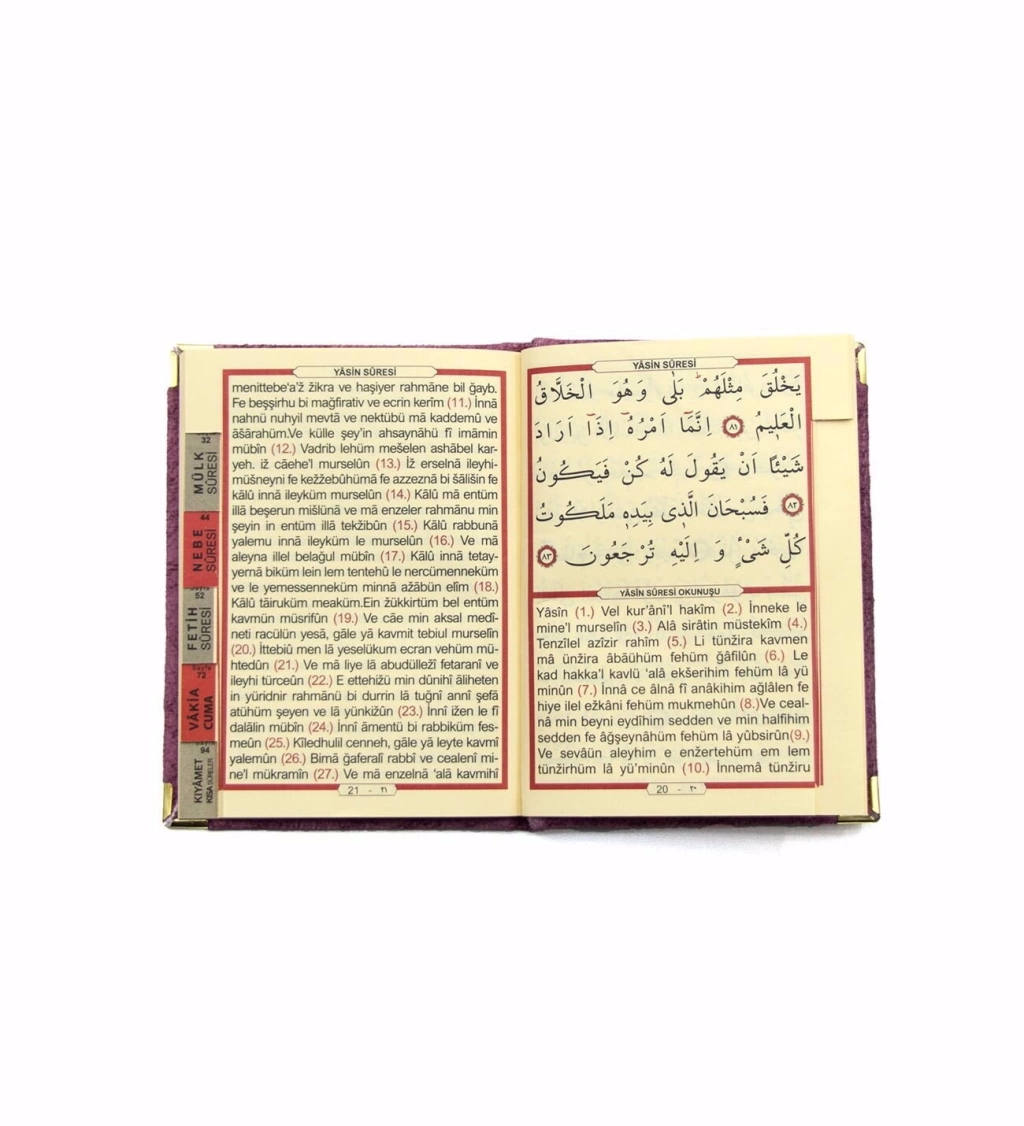 YÂSİN SÛRESİ
يَخْلُقَ مِثْلَهُمْ بَلٰى وَهُوَ الْخَلَّاقُ
الْعَلٖيمُ ٨١ اِنَّمَٓا اَمْرُهُٓ اِذَٓا اَرَادَ
شَيْئًا اَنْ يَقُولَ لَهُ كُنْ فَيَكُونُ
٨٢ فَسُبْحَانَ الَّذٖى بِيَدِهٖ مَلَكُوتُ
كُلِّ شَىْءٍ وَ اِلَيْهِ تُرْجَعُونَ ٨٣
YÂSİN SÛRESİ OKUNUŞU
Yâsîn (1.) Vel kur'ânî'l hakîm (2.) İnneke le
mine'l murselîn (3.) Alâ sirâtin müstekîm (4.)
Tenzîlel azîzir rahîm (5.) Li tünžira kavmen
mâ ünžira âbâühüm fehüm ğâfilûn (6.) Le
kad hakka'l kavlü 'alâ ekšerihim fehüm lâ yü
minûn (7.) İnnâ ce âlnâ fî anâkihim ağlâlen fe
hiye ilel ežkâni fehüm mukmehûn (8.)Ve ceal-
nâ min beyni eydîhim sedden ve min halfihim
sedden fe âğşeynâhüm fehüm lâ yûbsirûn(9.)
Ve sevâün aleyhim e enžertehüm em lem
tünžirhüm lâ yü'minûn (10.) İnnemâ tünžiru
20 - ٢٠
YÂSİN SÛRESİ
menittebe'a'ž žikra ve haşiyer rahmâne bil ğayb.
Fe beşşirhu bi mağfirativ ve ecrin kerîm (11.) İnnâ
nahnü nuhyil mevtâ ve nektübü mâ kaddemû ve
âšârahüm.Ve külle şey'in ahsaynâhü fî imâmin
mübîn (12.) Vadrib lehüm mešelen ashâbel kar-
yeh. iž câehe'l murselûn (13.) İž erselnâ ileyhi-
müšneyni fe kežžebûhümâ fe azzeznâ bi šâlišin fe
kâlû innâ ileyküm murselûn (14.) Kâlû mâ entüm
illâ beşerun mišlünâ ve mâ enzeler rahmânu min
şeyin in entüm illâ tekžibûn (15.) Kâlû rabbunâ
yalemu innâ ileyküm le murselûn (16.) Ve mâ
aleyna illel belağul mübîn (17.) Kâlû innâ tetay-
yernâ biküm lein lem tentehû le nercümenneküm
ve le yemessenneküm minnâ ažâbün elîm (18.)
Kâlû tâiruküm meaküm.Ein žükkirtüm bel entüm
kavmün müsrifûn (19.) Ve câe min aksal medî-
neti racülün yesâ, gâle yâ kavmit tebiul murselîn
(20.) İttebiû men lâ yeselükum ecran vehüm mü-
htedûn (21.) Ve mâ liye lâ abudülležî fetaranî ve
ileyhi türceûn (22.) E ettehižü min dûnihî âliheten
in yüridnir rahmânü bi durrin lâ tuğnî annî şefâ
atühüm şeyen ve lâ yünkižûn (23.) İnnî ižen le fî
dalâlin mübîn (24.) İnnî âmentü bi rabbiküm fes-
meûn (25.) Kîledhulil cenneh, gâle yâ leyte kavmî
yalemûn (26.) Bimâ ğaferalî rabbî ve cealenî mi-
ne'l mükramîn (27.) Ve mâ enzelnâ 'alâ kavmihî
21 - ٢١
32
MÜLK
SÛRESİ
44
NEBE
SÛRESİ
52
FETİH
SÛRESİ
72
VÂKIA
CUMA
94
KIYÂMET
KISA SÛRELER